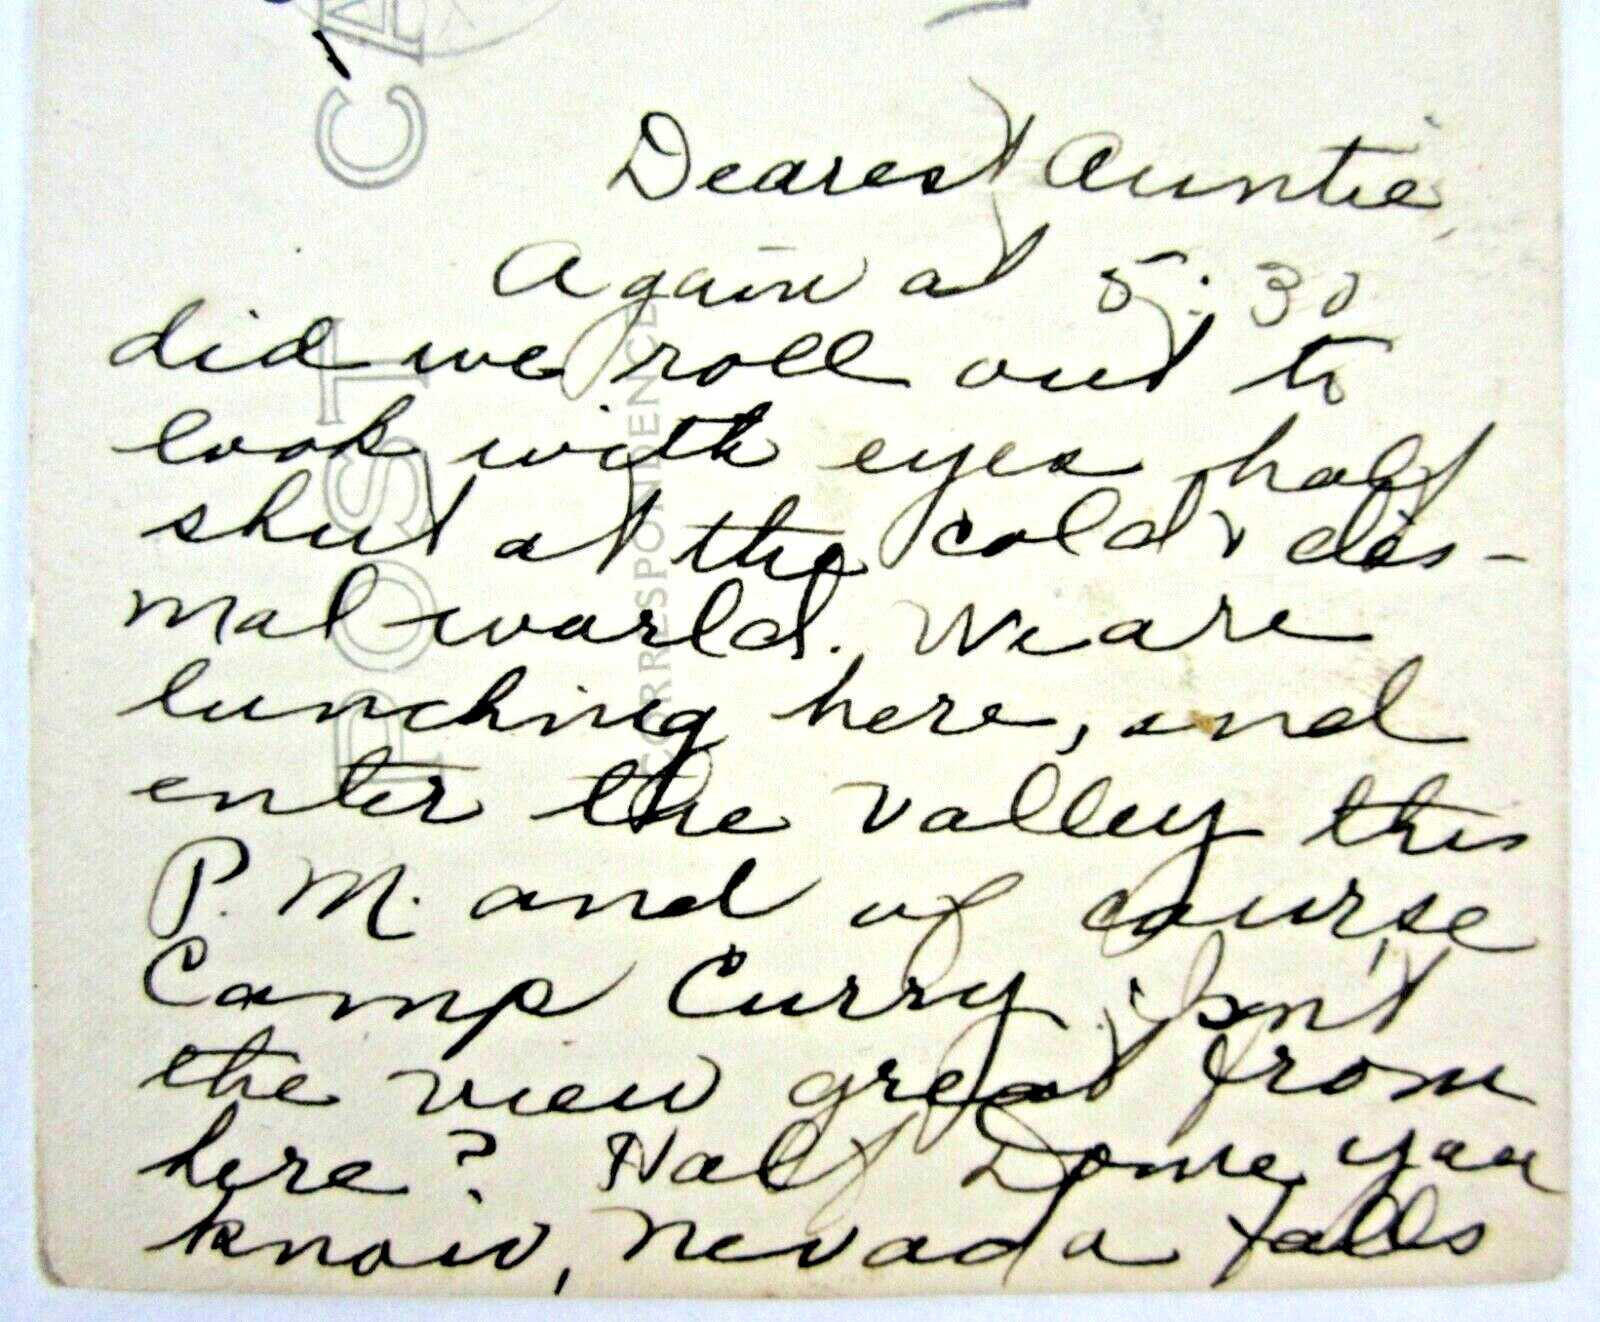 POST CA
CORRESPONDENCE
Dearest Auntie,
Again at 5:30
did we roll out to
look with eyes half
shut at the cold & dis-
mal world. We are
lunching here, and
enter the valley this
P.M. and of course
Camp Curry. Isn't
the view great from
here? Half Dome you
know, Nevada falls